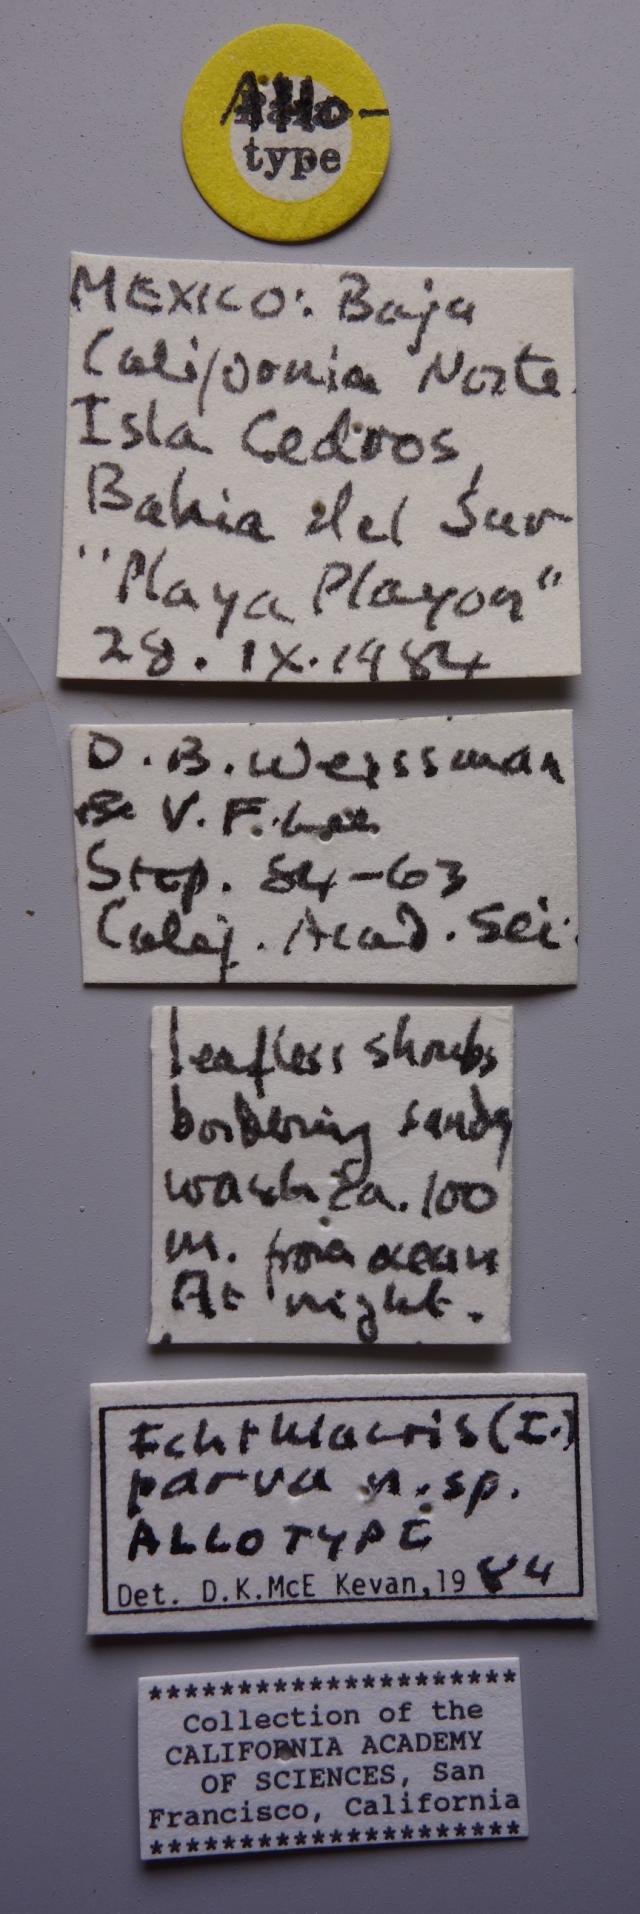 Allo-
type
MEXICO: Baja
California Norte
Isla Cedros
Bahia del Sur
"Playa Playon"
28.IX.1984
D.B.Weissman
& V.F.Lee
Stop. 84-63
Calif. Acad. Sci.
leafless shrubs
bordering sandy
wash Ca. 100
m. from ocean
At night.
Ichthiacris (I.)
parva n.sp.
ALLOTYPE
Det. D.K.McE Kevan,1984
********************
Collection of the
CALIFORNIA ACADEMY
OF SCIENCES, San
Francisco, California
********************